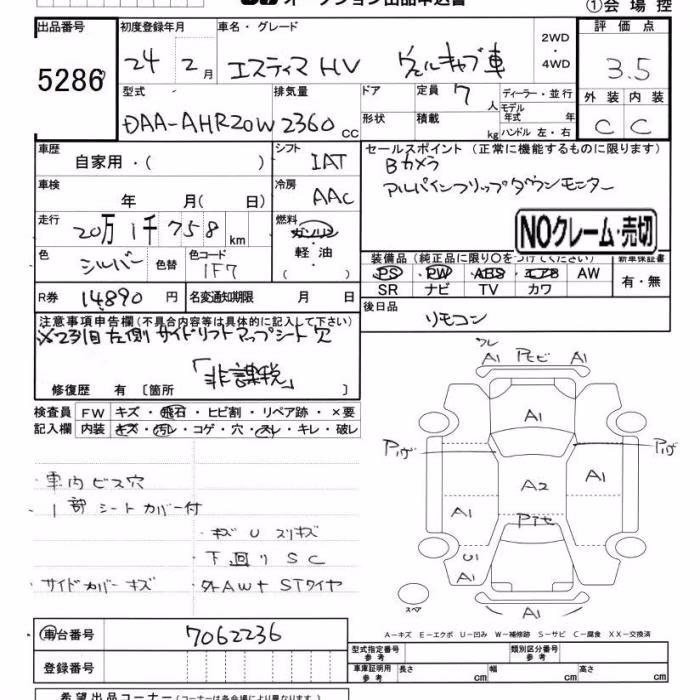 オークション出品申込書
①会場控
出品番号 初度登録年月 車名・グレード 評価点
5286 24年 2月 エスティマHV ウェルキャブ車 2WD・4WD 3.5
型式 排気量 ドア 定員 ディーラー・並行 外装 内装
DAA-AHR20W 2360cc 7人 モデル年式 年 C C
形状 積載 kg ハンドル 左・右
車歴 シフト セールスポイント (正常に機能するものに限ります)
自家用・( ) IAT Bカメラ
車検 冷房 アルパインフリップダウンモニター
年 月( 日) AAC
走行 燃料 NOクレーム・売切
20万1千758km ガソリン
軽油
( )
色 色替 色コード 装備品(純正品に限り○をつけてください) 新車保証書
シルバー 1F7 PS PW ABS エアB AW 有・無
SR ナビ TV カワ
R券 14,890円 名変通知期限 月 日 後日品
リモコン
注意事項申告欄(不具合内容等は具体的に記入して下さい)
※2列目左側サイドリフトアップシート穴
「非課税」
修復歴 有 〔箇所 〕
検査員記入欄 FW キズ・飛石・ヒビ割・リペア跡・×要
内装 キズ・汚レ・コゲ・穴・スレ・キレ・破レ
・車内ビス穴
・1部シートカバー付
・キズ U スリキズ
・下回りSC
・サイドカバーキズ ・外AW+STタイヤ
フレ
A1 PモビA1
A1
Pハゲ Pハゲ
A1
A2
A1
Pテヤ
U1
A1
スペア
A1
A-キズ E-エクボ U-凹み W-補修跡 S-サビ C-腐食 XX-交換済
車台番号 7062236
登録番号
型式指定番号 参考 類別区分番号 参考
車庫証明用 参考 長さ cm 幅 cm 高さ cm
希望出品コーナー(コーナーは各会場により異なります。)